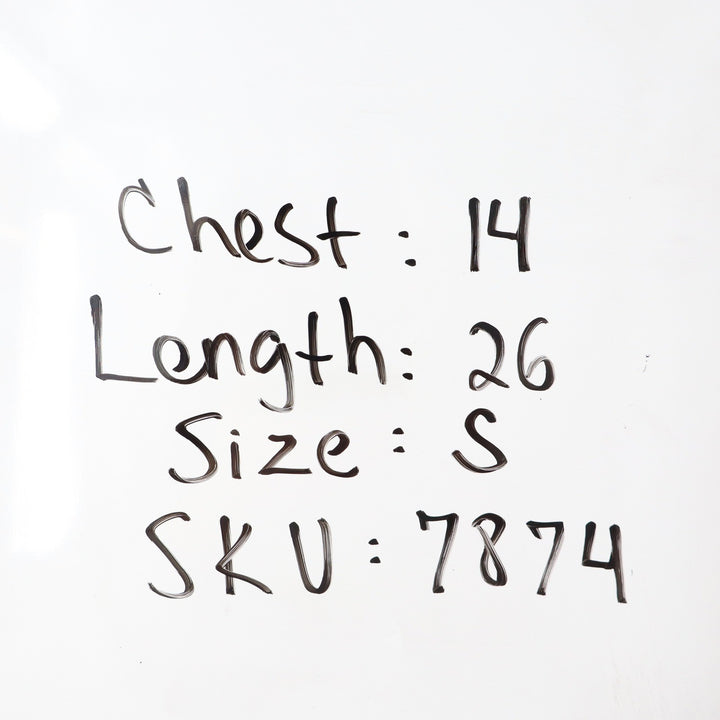 Chest: 14
Length: 26
Size: S
SKU: 7874